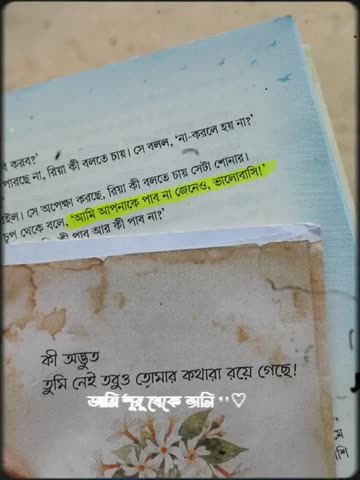 করব?'
পারছে না, রিয়া কী বলতে চায়। সে বলল, 'না-করলে হয় না?'
ইল। সে অপেক্ষা করছে, রিয়া কী বলতে চায় সেটা শোনার।
চুপ থেকে বলে, 'আমি আপনাকে পাব না জেনেও, ভালোবাসি!'
কী পাব আর কী পাব না?'
কী অদ্ভুত
তুমি নেই তবুও তোমার কথারা রয়ে গেছে!
থেকে